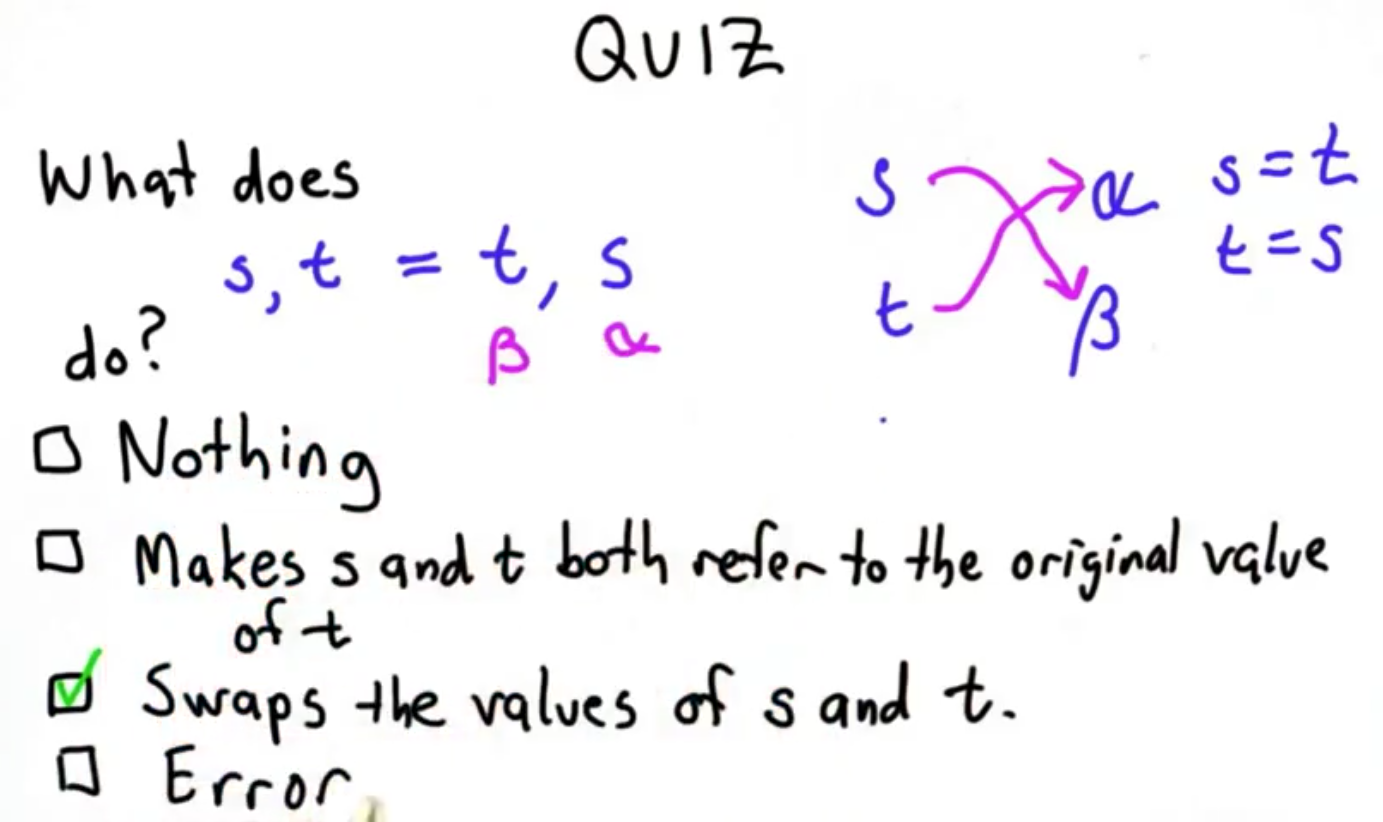 QUIZ
What does
s, t = t, s
β α
do?
s α s = t
t β t = s
Nothing
Makes s and t both refer to the original value
of t
Swaps the values of s and t.
Error